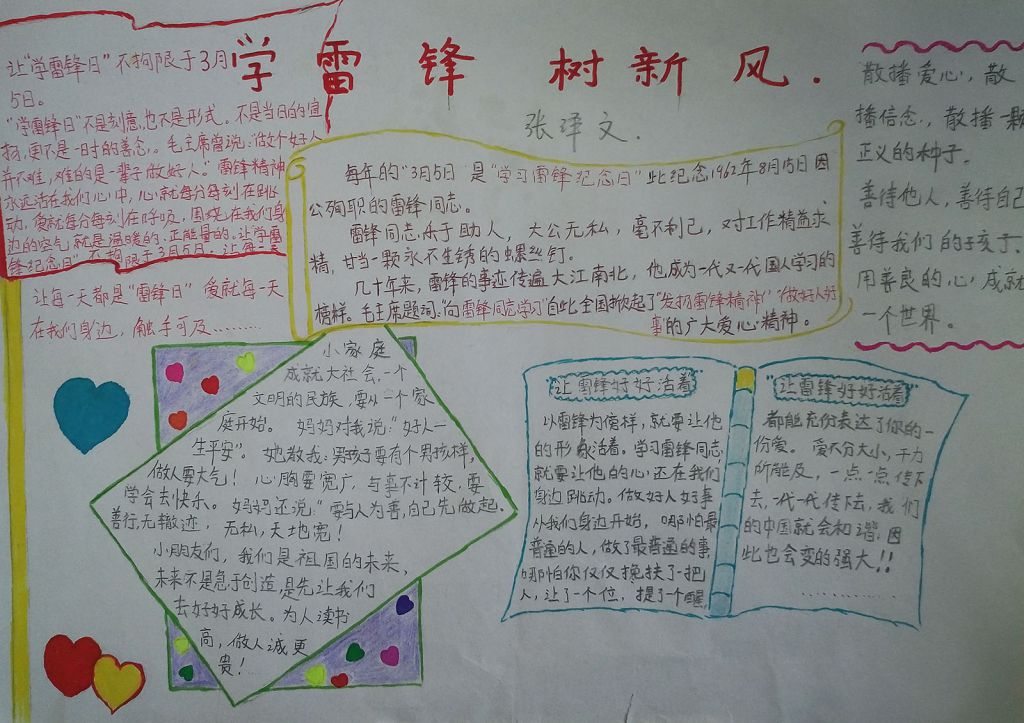 学雷锋 树新风.
张译文.
让“学雷锋日”不拘限于3月
5日。
“学雷锋日”不是刻意,也不是形式。不是当日的宣
扬,更不是一时的善念。毛主席曾说:“做个好人
并不难,难的是一辈子做好人”雷锋精神
永远活在我们心中,心就每分每刻在跳
动,爱就每分每刻在呼吸,围绕在我们身
边的空气就是温暖的、正能量的。让学雷
锋纪念日”不拘限于3月5日。让每一天
让每一天都是“雷锋日”爱就每一天
在我们身边,触手可及………
每年的“3月5日 是“学习雷锋纪念日”此纪念1962年8月15日因
公殉职的雷锋同志。
雷锋同志乐于助人,大公无私,毫不利己,对工作精益求
精,甘当一颗永不生锈的螺丝钉。
几十年来,雷锋的事迹传遍大江南北,他成为一代又一代国人学习的
榜样。毛主席题词:“向雷锋同志学习”自此全国掀起了“发扬雷锋精神”“做好人好
事的广大爱心精神。
散播爱心,散
播信念,散播一颗
正义的种子。
善待他人,善待自己
善待我们的孩子,
用善良的心,成就
一个世界。
小家庭
成就大社会,一个
文明的民族,要从一个家
庭开始。妈妈对我说:“好人一
生平安”。她教我:男孩子要有个男孩样,
做人要大气!心胸要宽广,与事不计较,要
学会去快乐。妈妈还说:“要与人为善,自己先做起.
善行,无辙迹,无私,天地宽!
小朋友们,我们是祖国的未来,
未来不是急于创造,是先让我们
去好好成长。为人读书
高,做人诚更
贵!
让雷锋好好活着
以雷锋为榜样,就要让他
的形象活着。学习雷锋同志,
就要让他的心还在我们
身边跳动。做好人好事
从我们身边开始,哪怕最
普通的人,做了最普通的事,
哪怕你仅仅搀扶了一把
人,让了一个位,提了一个醒,
让雷锋好好活着
都能充份表达了你的一
份爱。爱不分大小,于力
所能及,一点一点传下
去,一代一代传下去,我们
的中国就会和谐,因
此也会变的强大!!
…………